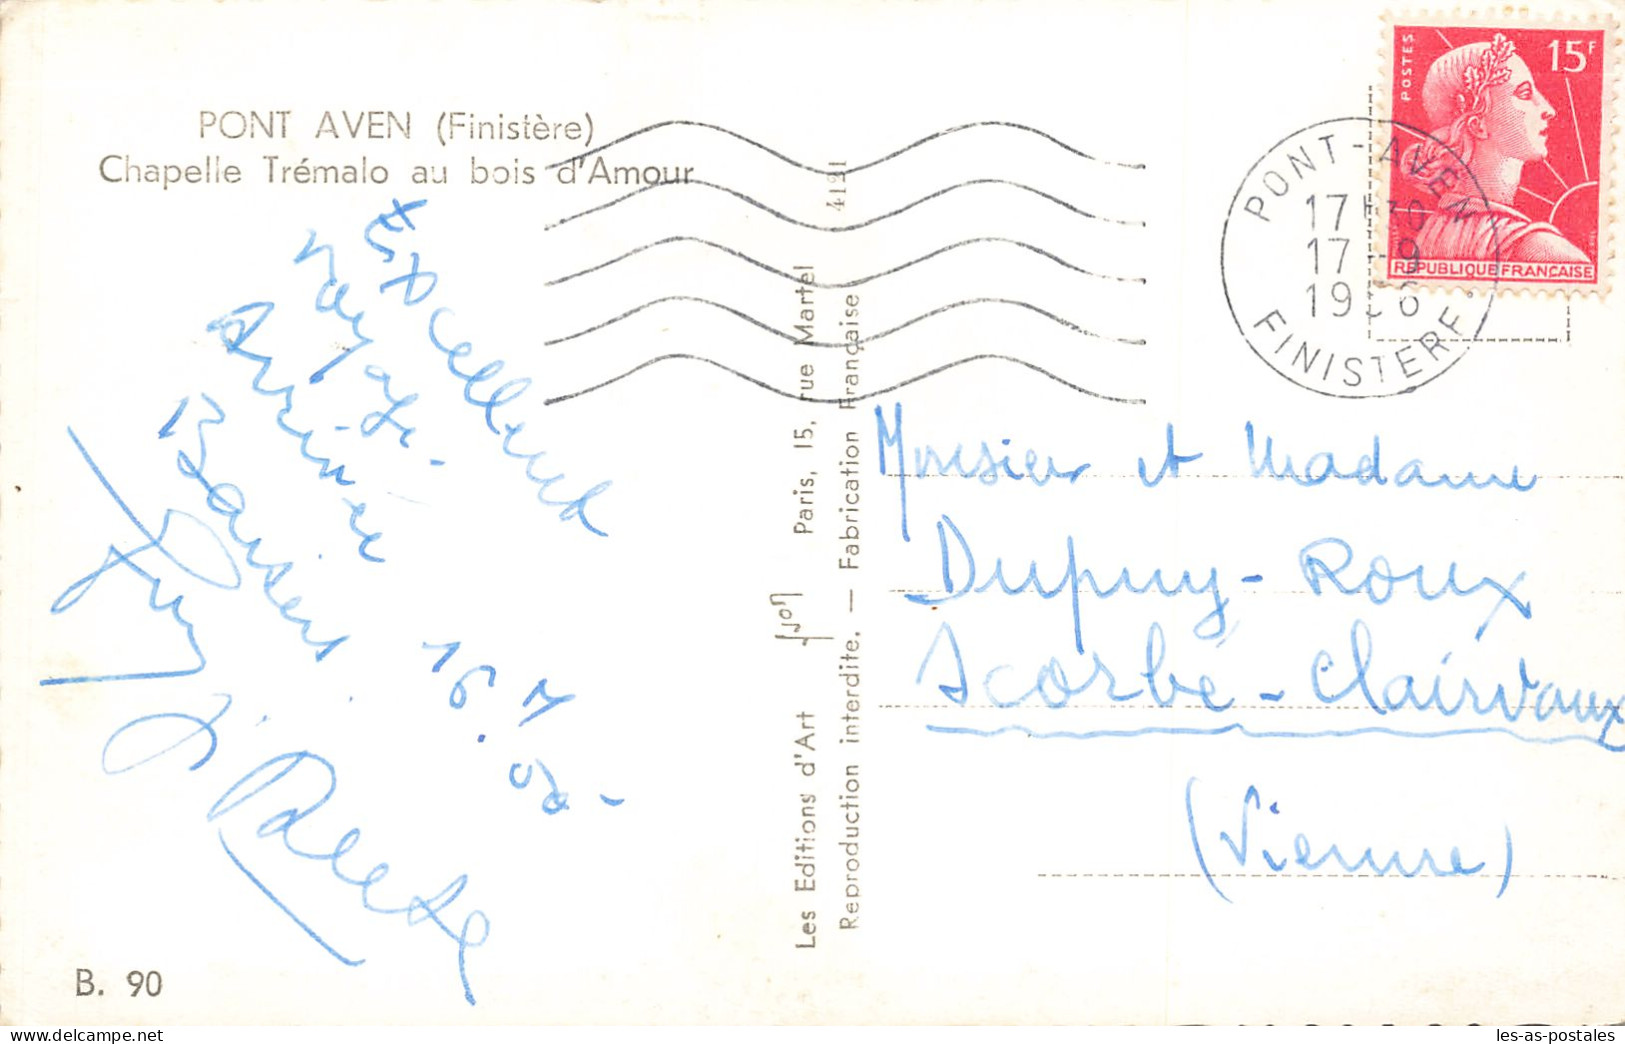 PONT AVEN (Finistère)
Chapelle Trémalo au bois d'Amour
Excellent
voyage.
Arrivée
Baisers
16.
J.
B. 90
Les Editions d'Art Yvon Paris, 15, rue Martel
Reproduction interdite. — Fabrication Française
4121
POSTES
15F
REPUBLIQUE FRANÇAISE
PONT-AVEN
17H30
17-9
1956
FINISTERE
Monsieur et Madame
Dupuy-Roux
Scorbé-Clairvaux
(Vienne)
les-as-postales